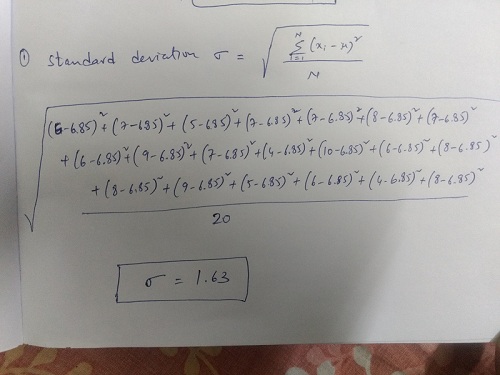 ① Standard deviation σ = √(Σ_{i=1}^{N} (xᵢ - x)² / N)
√((6-6.85)² + (7-6.85)² + (5-6.85)² + (7-6.85)² + (7-6.85)² + (8-6.85)² + (7-6.85)²
+ (6-6.85)² + (9-6.85)² + (7-6.85)² + (4-6.85)² + (10-6.85)² + (6-6.85)² + (8-6.85)²
+ (8-6.85)² + (9-6.85)² + (5-6.85)² + (6-6.85)² + (4-6.85)² + (8-6.85)²
20
σ = 1.63